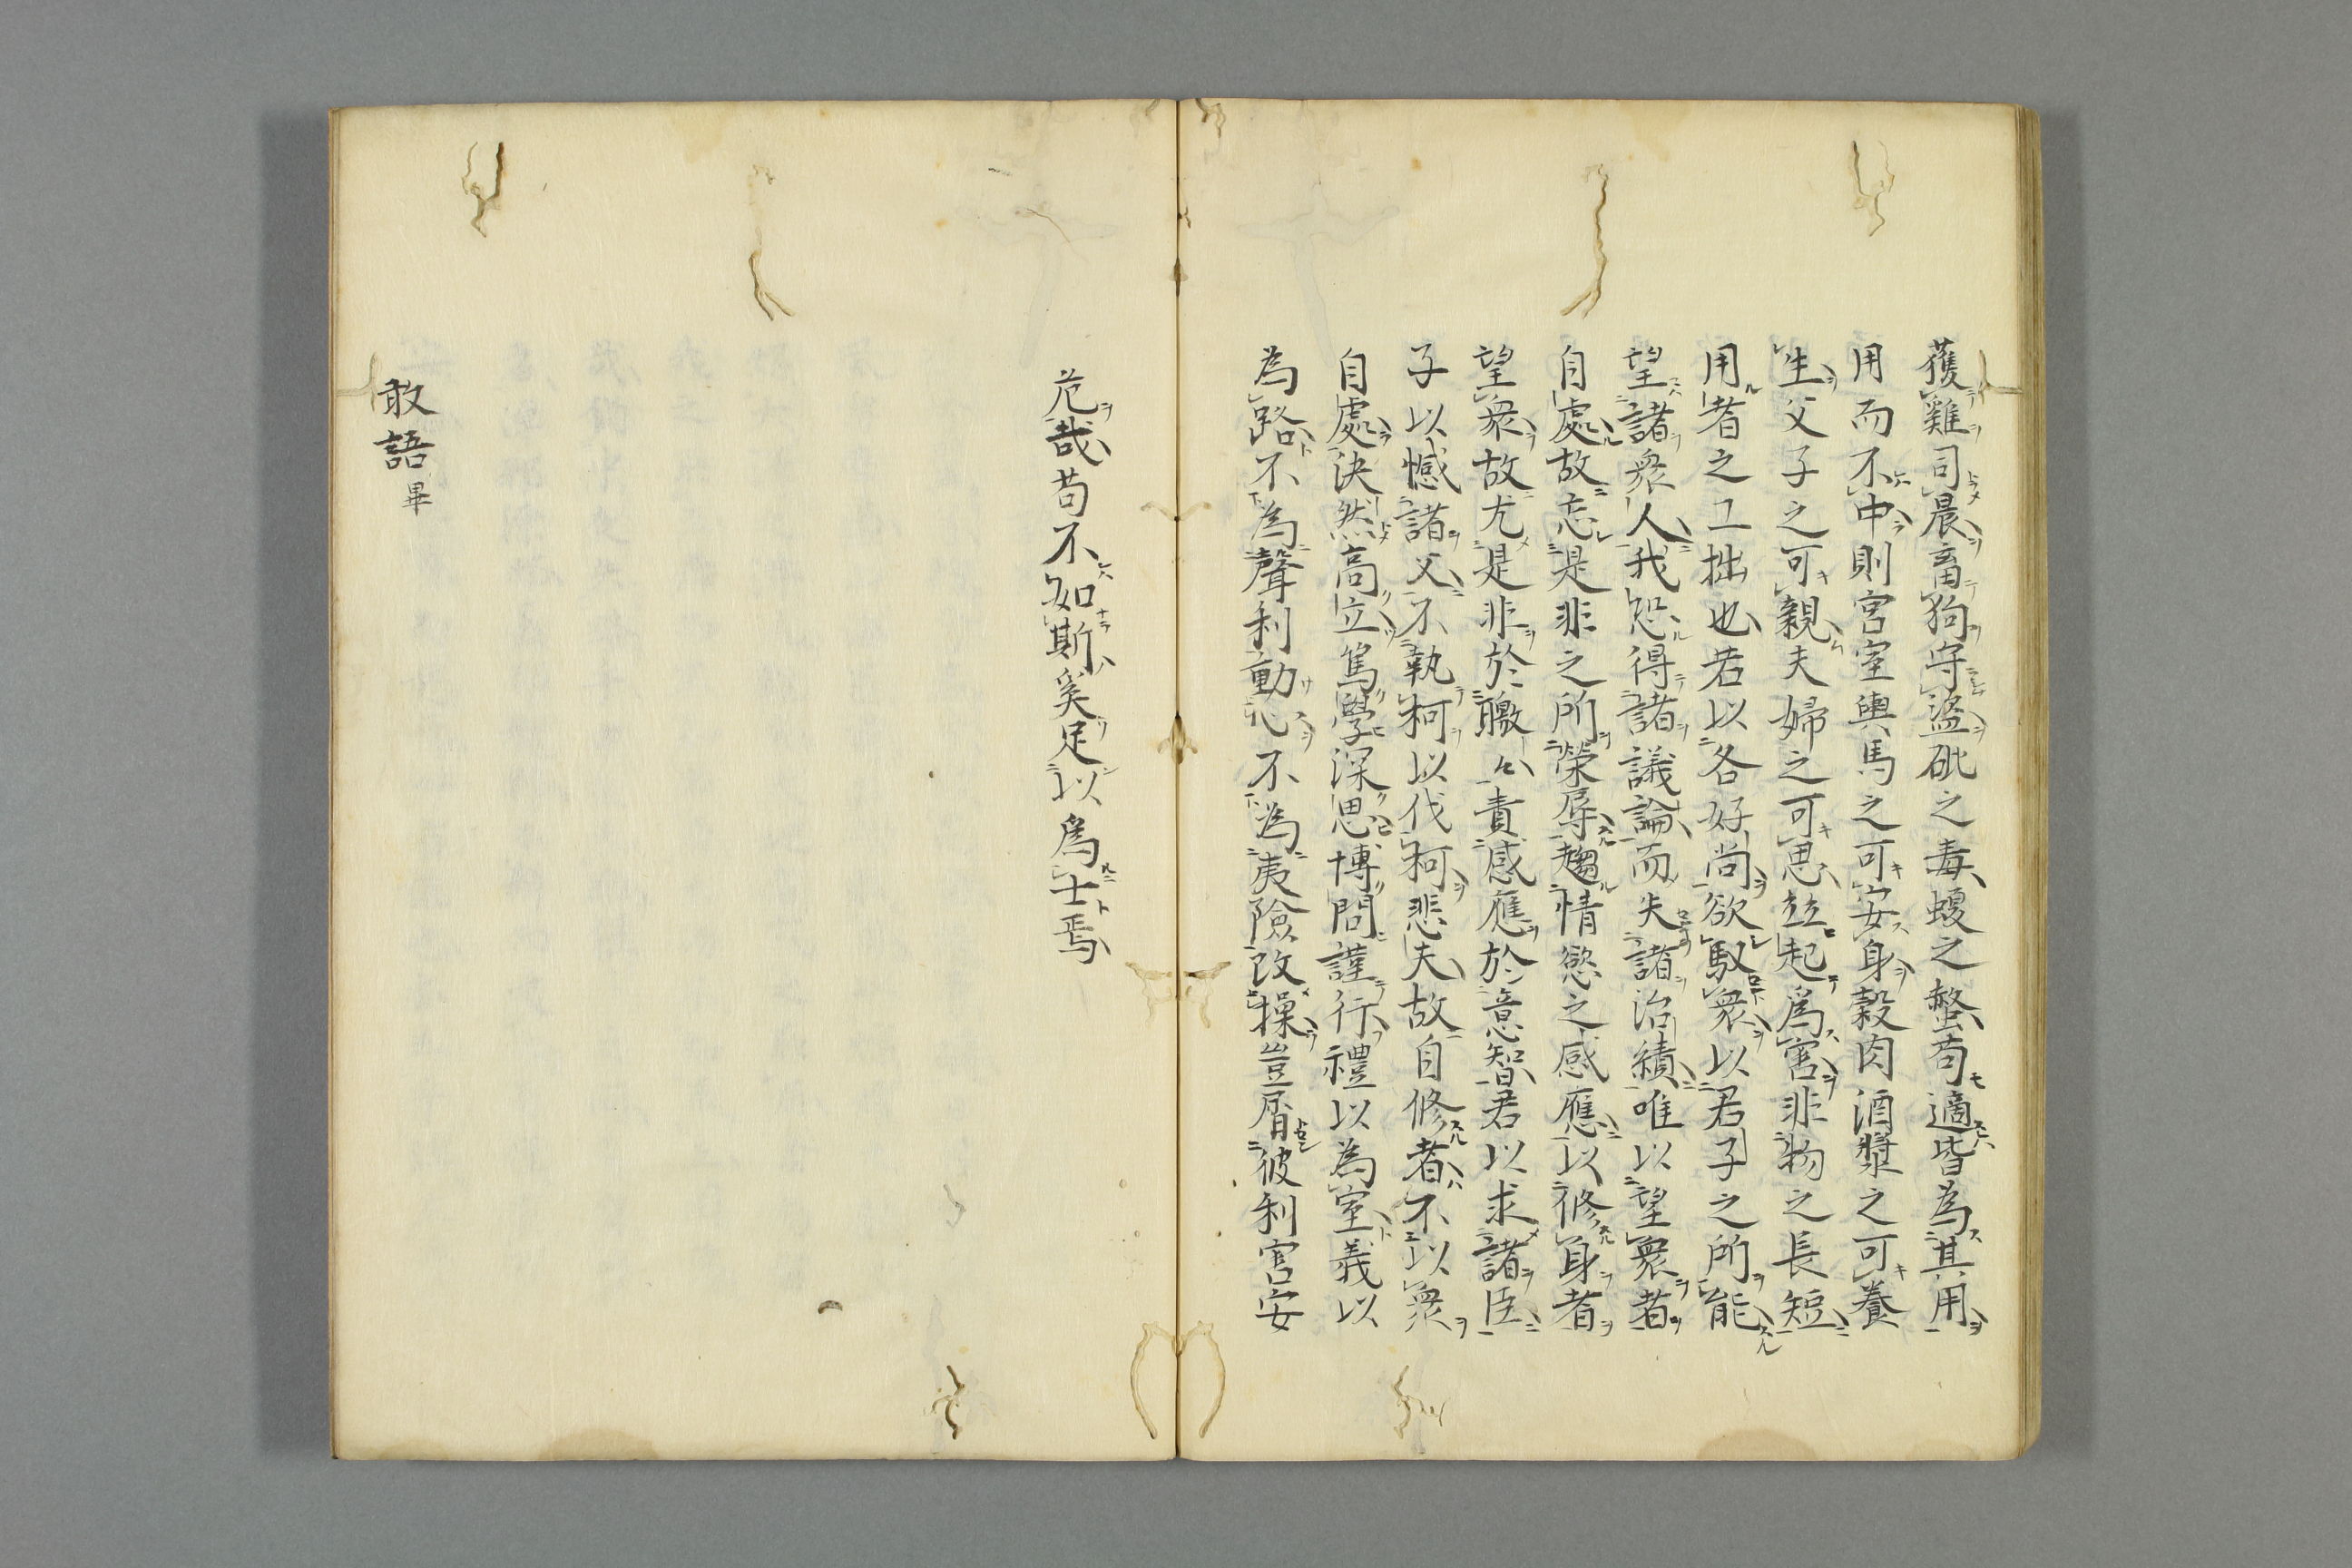 獲雞司晨畜狗守盜砒之毒蝮之螫苟適皆為其用
用而不中則宮室輿馬之可安身穀肉酒漿之可養
生父子之可親夫婦之可思並起為害非物之長短
用者之工拙也若以各好尚欲馭衆以君子之所能
望諸衆人我恐得諸議論而失諸治績唯以望衆者
自處故忘是非之所榮辱趨情慾之感應以修身者
望衆故尤是非於皦々責感應於意智君以求諸臣
子以憾諸父不執柯以伐柯悲夫故自修者不以衆
自處決然高立篤學深思博問謹行禮以為室義以
為路不為聲利動心不為夷險改操豈屑彼利害安
危哉苟不如斯奚足以為士焉
敢語畢